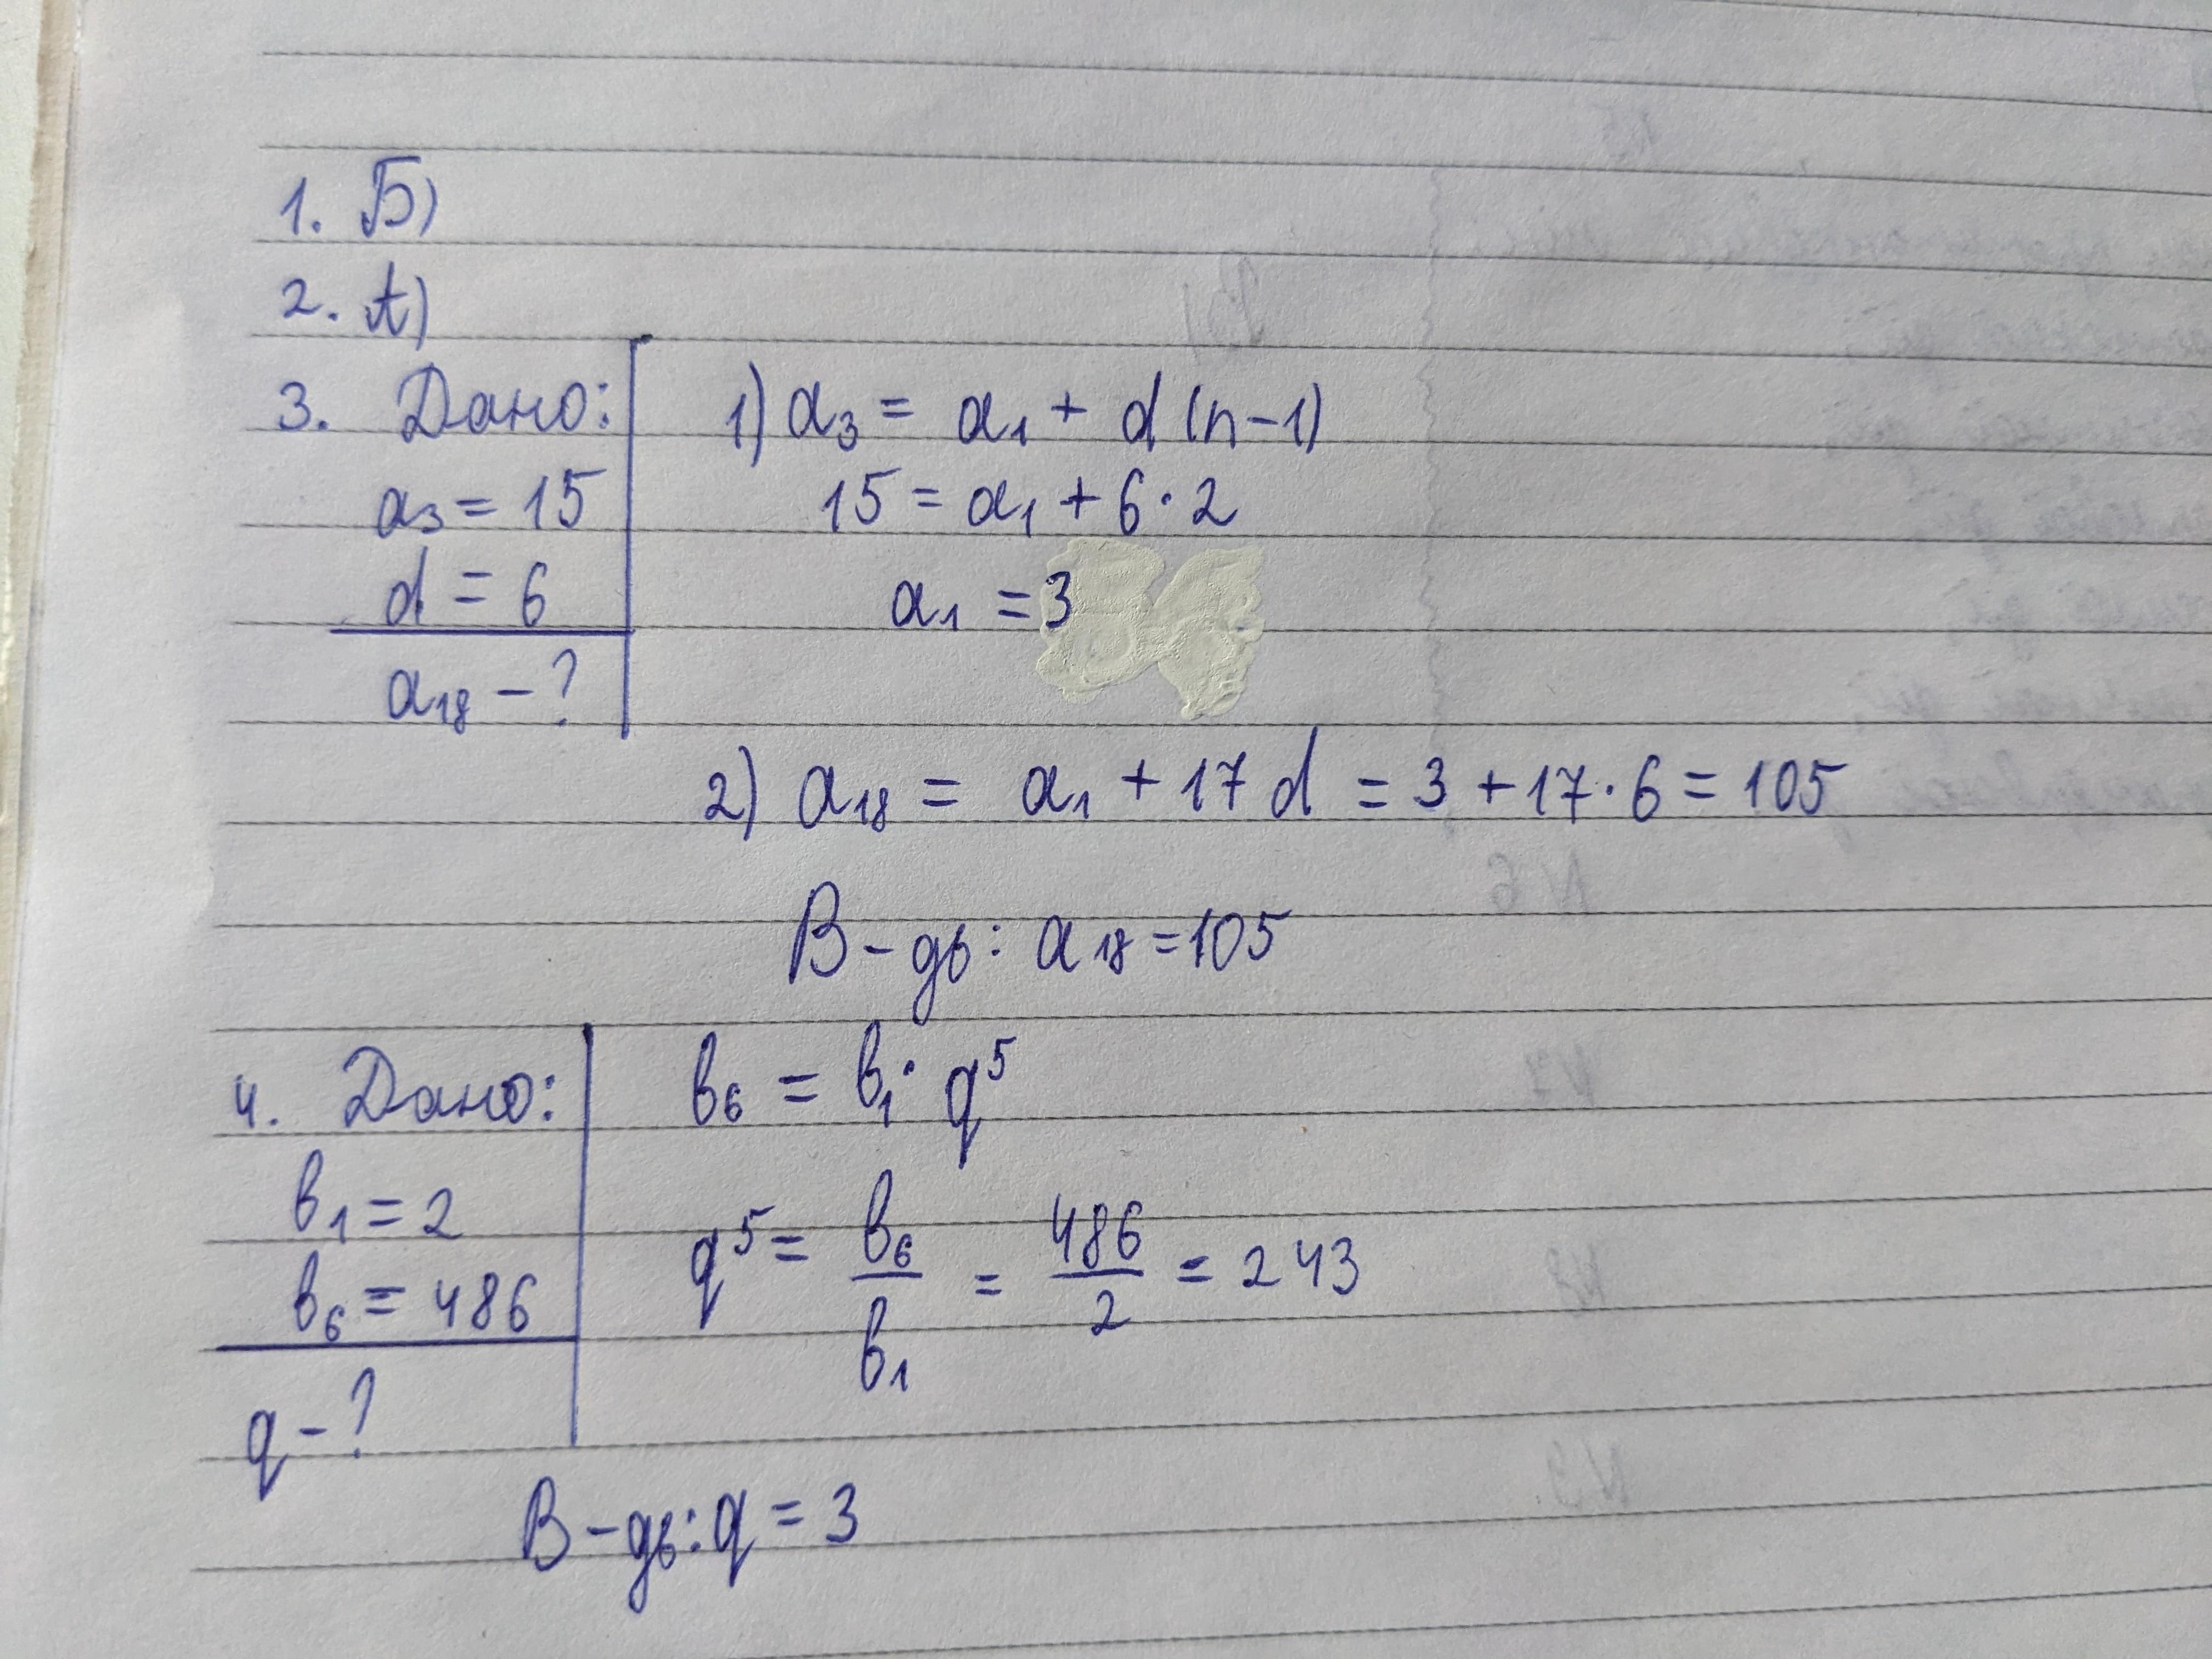 1. Б)
2. А)
3. Дано:
a₃ = 15
d = 6
a₁₈ - ?
1) a₃ = a₁ + d (n-1)
15 = a₁ + 6 · 2
a₁ = 3
2) a₁₈ = a₁ + 17 d = 3 + 17 · 6 = 105
В-дь: a₁₈ = 105
4. Дано:
в₁ = 2
в₆ = 486
q - ?
в₆ = в₁ · q⁵
q⁵ = в₆/в₁ = 486/2 = 243
В-дь: q = 3